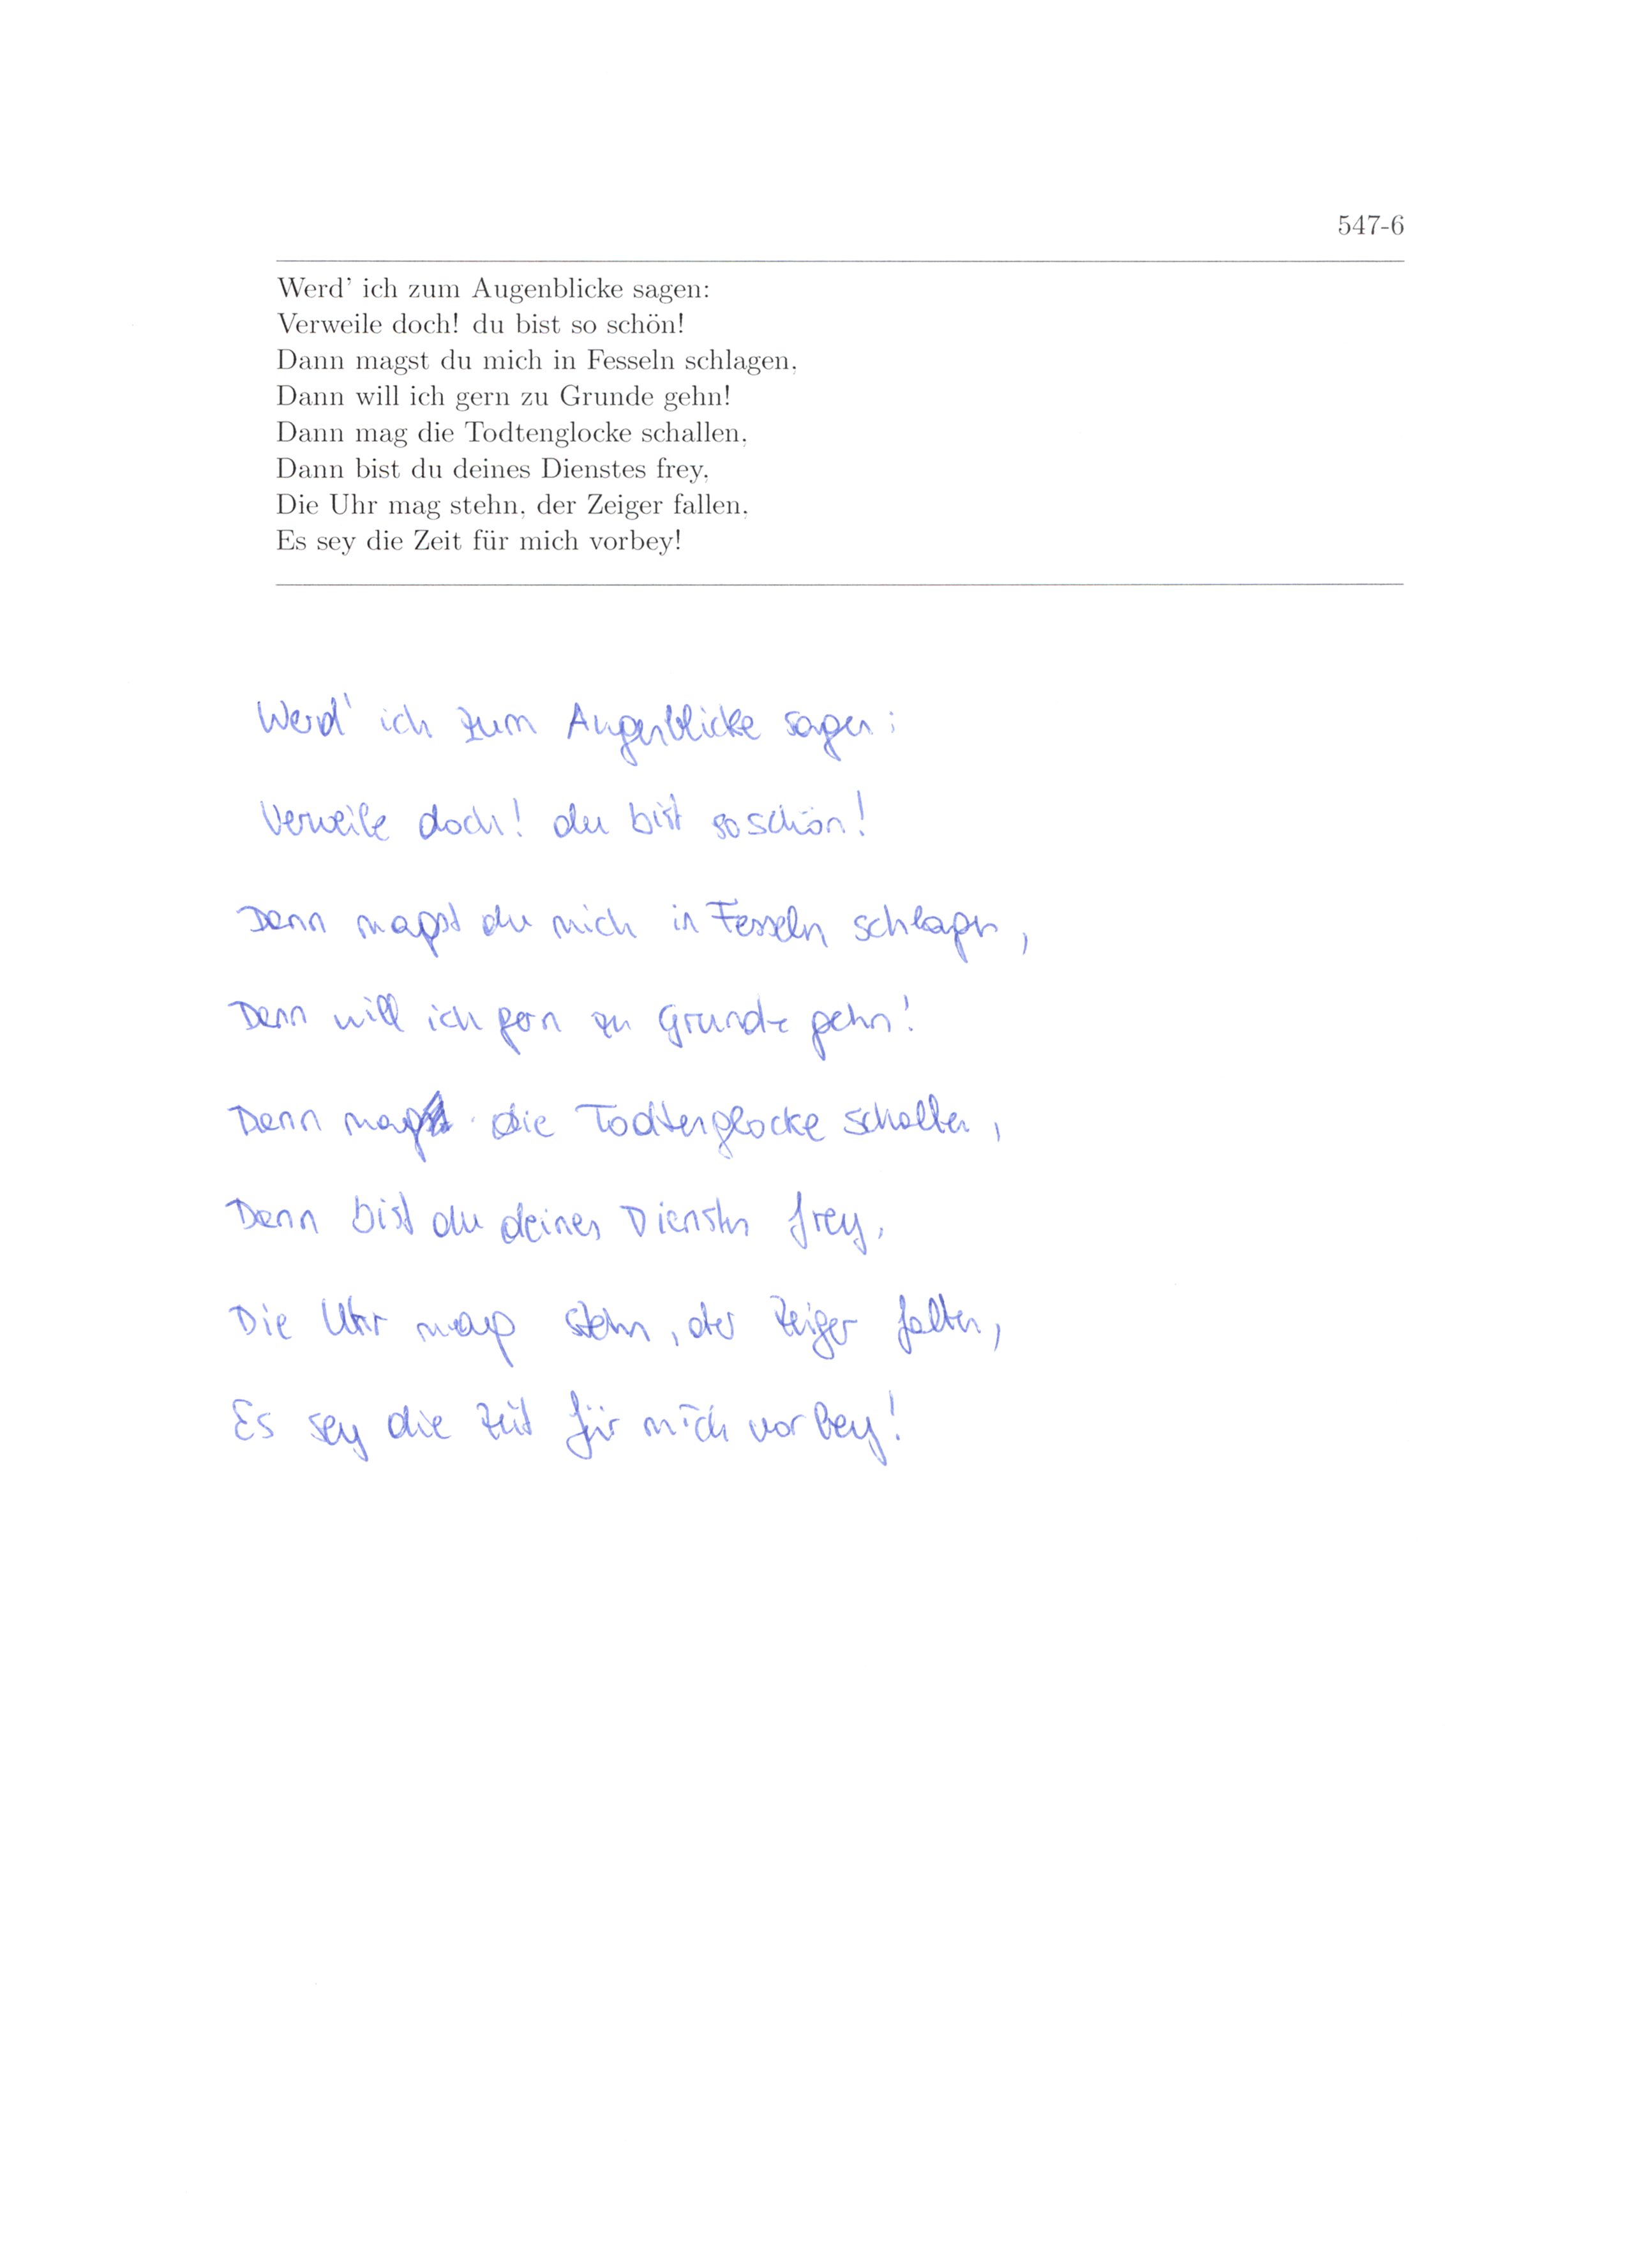 547-6
Werd' ich zum Augenblicke sagen:
Verweile doch! du bist so schön!
Dann magst du mich in Fesseln schlagen,
Dann will ich gern zu Grunde gehn!
Dann mag die Todtenglocke schallen,
Dann bist du deines Dienstes frey,
Die Uhr mag stehn, der Zeiger fallen,
Es sey die Zeit für mich vorbey!
Werd' ich zum Augenblicke sagen:
Verweile doch! du bist so schön!
Dann magst du mich in Fesseln schlagen,
Dann will ich gern zu Grunde gehn!
Dann mag die Todtenglocke schallen,
Dann bist du deines Dienstes frey,
Die Uhr mag stehn, der Zeiger fallen,
Es sey die Zeit für mich vorbey!